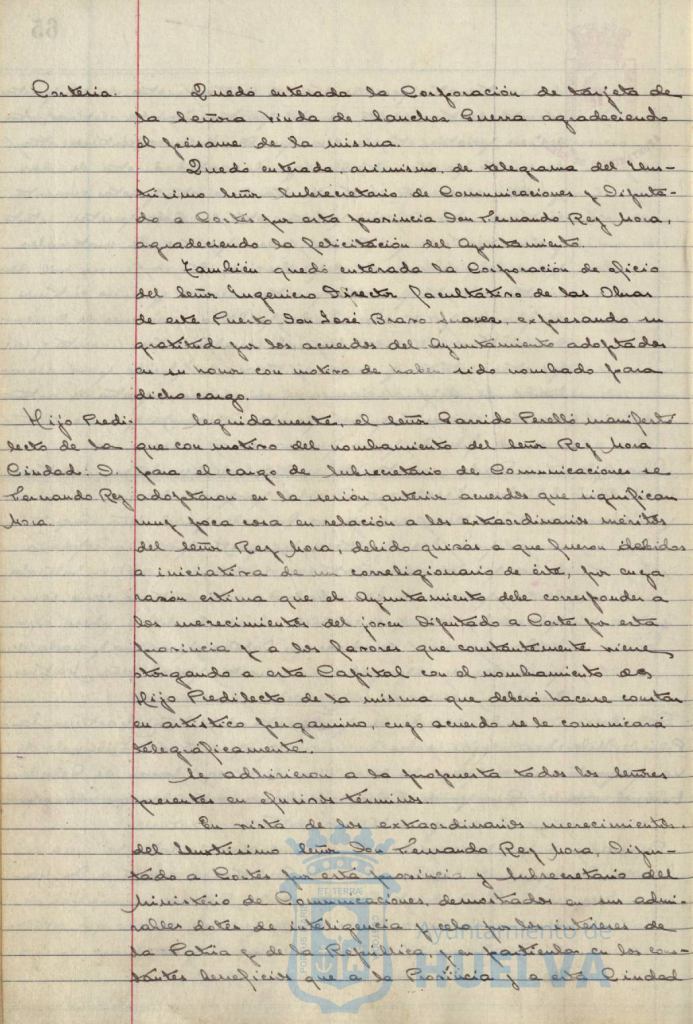 Cortesia.
Quedó enterada la Corporación de tarjeta de
la Señora Viuda de Sanchez Guerra agradeciendo
el pésame de la misma.
Quedó enterada, asimismo, de telegrama del Ilus-
trísimo Señor Subsecretario de Comunicaciones y Diputa-
do a Cortes por esta provincia Don Fernando Rey Mora,
agradeciendo la felicitación del Ayuntamiento.
También quedó enterada la Corporación de oficio
del Señor Ingeniero Director facultativo de las Obras
de este Puerto Don José Bravo Suarez, expresando su
gratitud por los acuerdos del Ayuntamiento adoptados
en su honor con motivo de haber sido nombrado para
dicho cargo.
Hijo Predi-
lecto de la
Ciudad: D.
Fernando Rey
Mora.
Seguidamente, el Señor Garrido Perelló manifestó
que con motivo del nombamiento del Señor Rey Mora
para el cargo de Subsecretario de Comunicaciones se
adoptaron en la sesión anterior acuerdos que significan
muy poca cosa en relación a los extraordinarios méritos
del Señor Rey Mora, debido quizás a que fueron debidos
a iniciativa de un correligionario de éste, por cuya
razón estima que el Ayuntamiento debe corresponder a
los merecimientos del joven Diputado a Cortes por esta
provincia y a los favores que constantemente viene
otorgando a esta Capital con el nombamiento de
Hijo Predilecto de la misma que deberá hacerse constar
en artístico pergamino, cuyo acuerdo se le comunicará
telegráficamente.
Se adhirieron a la propuesta todos los Señores
presentes en efusivos términos.
En vista de los extraordinarios merecimientos
del Ilustrísimo Señor Don Fernando Rey Mora, Dipu-
tado a Cortes por esta provincia y Subsecretario del
Ministerio de Comunicaciones, demostrados en sus admi-
rables dotes de inteligencia y celo por los intereses de
la Patria y de la República y en particular en los cons-
tantes beneficios que a la Provincia y a esta Ciudad
Ayuntamiento de
HUELVA